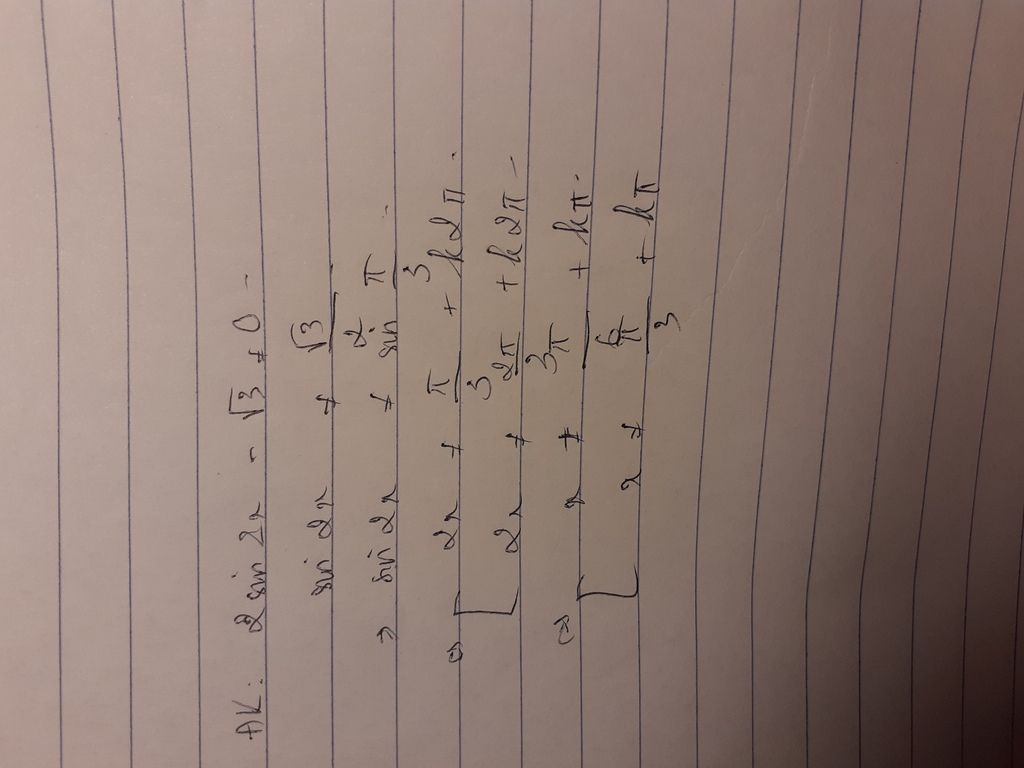 ĐK: 2 sin 2x - √3 ≠ 0
sin 2x ≠ √3/2
⇒ sin 2x ≠ sin π/3
⇔ [ 2x ≠ π/3 + k2π
2x ≠ 2π/3 + k2π
⇔ [ x ≠ π/6 + kπ
x ≠ π/3 + kπ